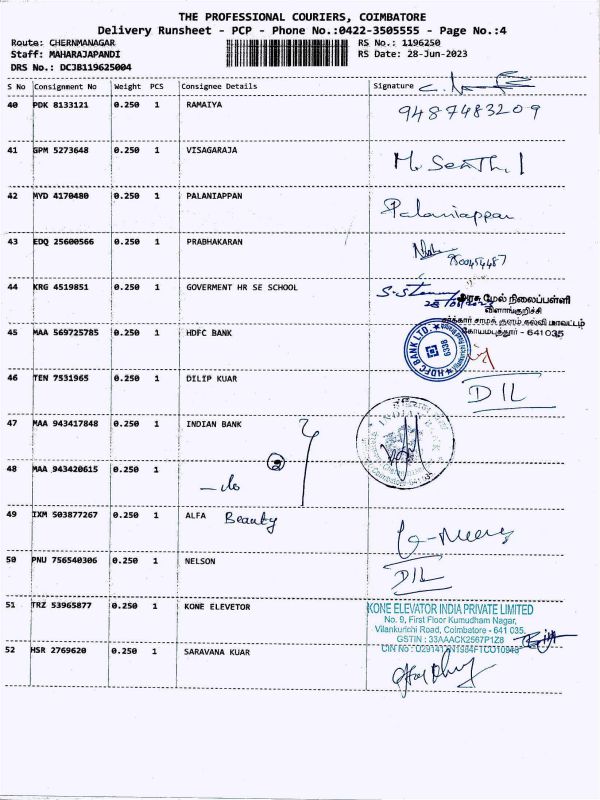 THE PROFESSIONAL COURIERS, COIMBATORE
Delivery Runsheet - PCP - Phone No.:0422-3505555 - Page No.:4
Route: CHERNMANAGAR RS No.: 1196250
Staff: MAHARAJAPANDI RS Date: 28-Jun-2023
DRS No.: DCJB119625004
S No Consignment No Weight PCS Consignee Details Signature
40 PDK 8133121 0.250 1 RAMAIYA 9487483209
41 GPM 5273648 0.250 1 VISAGARAJA
42 MYD 4170480 0.250 1 PALANIAPPAN Palaniappan
43 EDQ 25600566 0.250 1 PRABHAKARAN
44 KRG 4519851 0.250 1 GOVERMENT HR SE SCHOOL
அரசு மேல் நிலைப்பள்ளி
விளாங்குறிச்சி
கோயமுத்தூர் - 641035
45 MAA 569725785 0.250 1 HDFC BANK HDFC BANK LTD.
46 TEN 7531965 0.250 1 DILIP KUAR DIL
47 MAA 943417848 0.250 1 INDIAN BANK
48 MAA 943420615 0.250 1 —do ②
49 IXM 503877267 0.250 1 ALFA Beauty
50 PNU 756540306 0.250 1 NELSON DIL
51 TRZ 53965877 0.250 1 KONE ELEVETOR
KONE ELEVATOR INDIA PRIVATE LIMITED
No. 9, First Floor Kumudham Nagar,
Vilankurichi Road, Coimbatore - 641 035.
GSTIN : 33AAACK2567P1Z8
52 HSR 2769620 0.250 1 SARAVANA KUAR